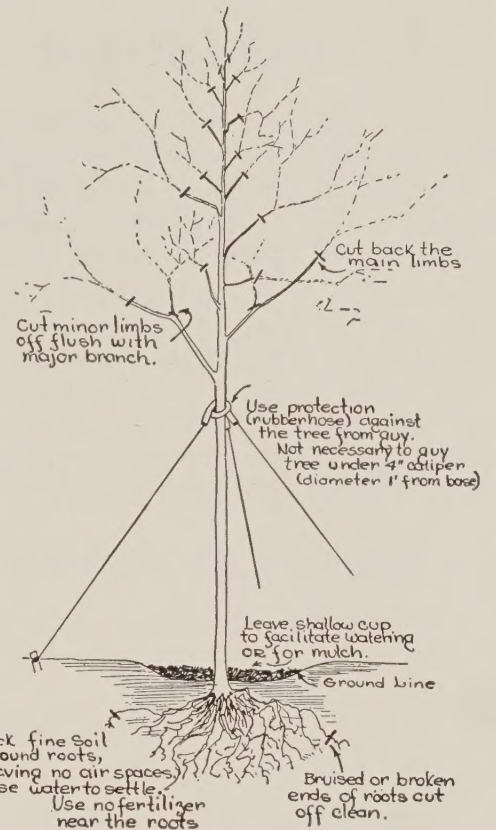 Cut back the
main limbs
Cut minor limbs
off flush with
major branch.
Use protection
(rubberhose) against
the tree from guy.
Not necessary to guy
tree under 4" caliper
(diameter 1' from base)
Leave shallow cup
to facilitate watering
OR for mulch.
Ground Line
ck fine soil
ound roots,
ving no air spaces,
se water to settle.
Use no fertilizer
near the roots
Bruised or broken
ends of roots cut
off clean.